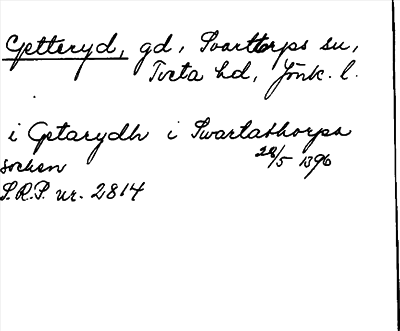 Getteryd, gd, Svarttorps sn,
Tveta hd, Jönk. l.
i Getarydh i Swartathorpa
socken 28/5 1396
S.R.P. nr. 2814